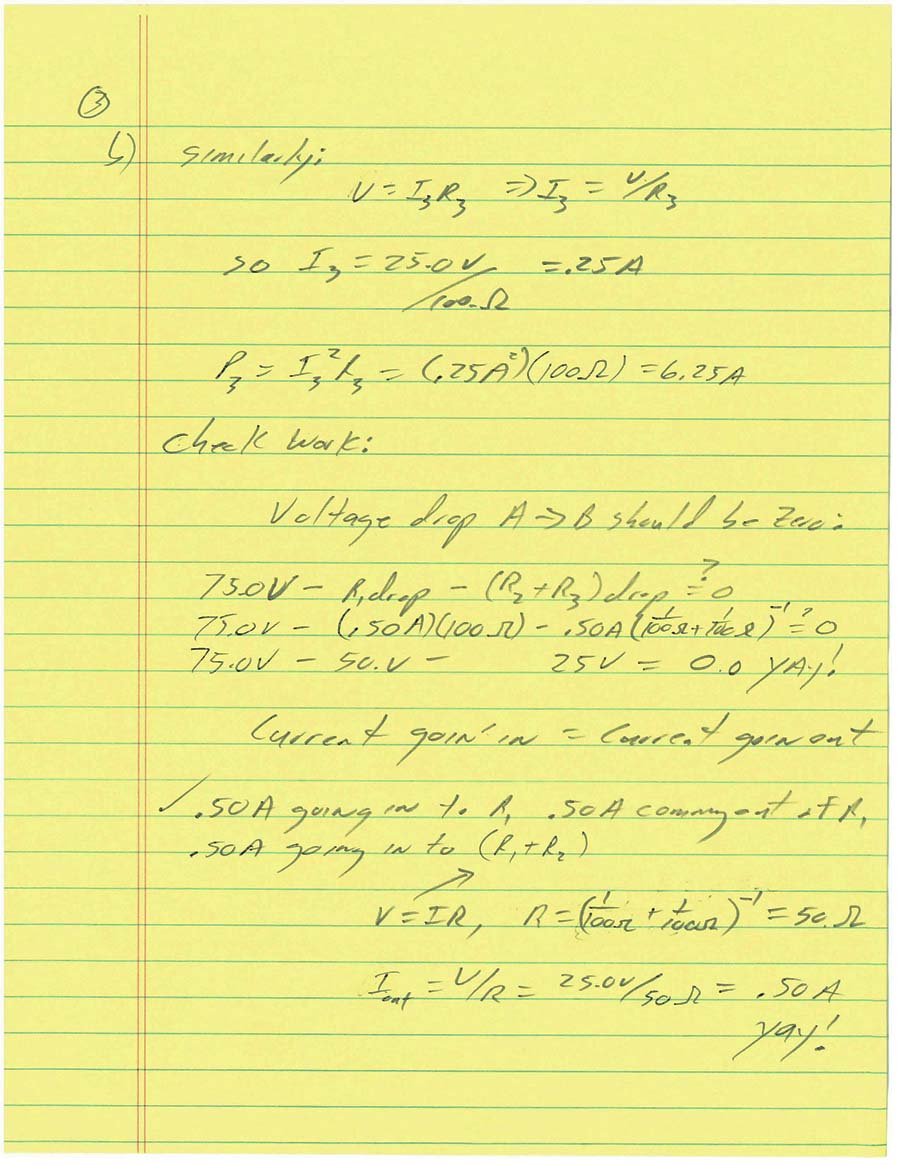 ③
b) Similarly:
V = I₃R₃ ⇒ I₃ = V/R₃
so I₃ = 25.0V/100.Ω = .25A
P₃ = I₃²R₃ = (.25A²)(100Ω) = 6.25A
Check Work:
Voltage drop A ⇒ B should be zero:
75.0V - R₁drop - (R₂+R₃) drop ?= 0
75.0V - (.50A)(100Ω) - .50A(1/100Ω + 1/100Ω)⁻¹ ?= 0
75.0V - 50.V - 25V = 0.0 YAY!
Current goin' in = Current goin out
✓ .50A going in to R₁ .50A comming out of R₁
.50A going in to (R₁+R₂)
V = IR, R = (1/100Ω + 1/100Ω)⁻¹ = 50.Ω
I out = V/R = 25.0V/50Ω = .50A
yay!